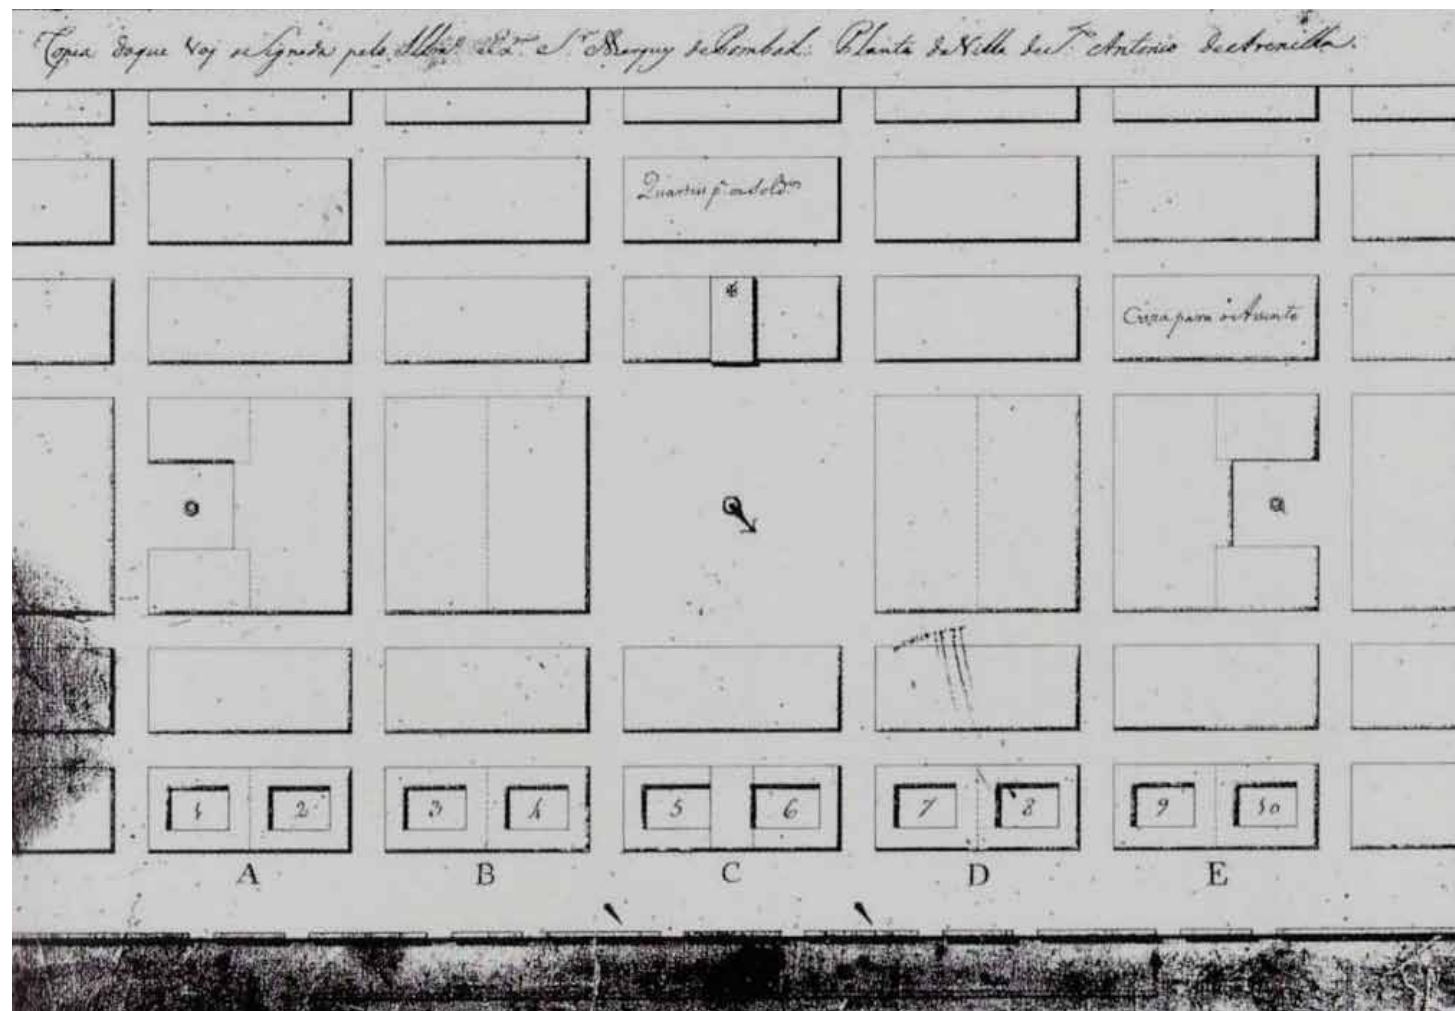 Copia do que voj asignada pelo Illmo. Exmo. Sr. Marquez de Pombal. Planta da Villa de Sto. Antonio de Arenilha.
Quarteis pa. os Soldos
Caza para o Assento
1 2 3 4 5 6 7 8 9 10
A B C D E